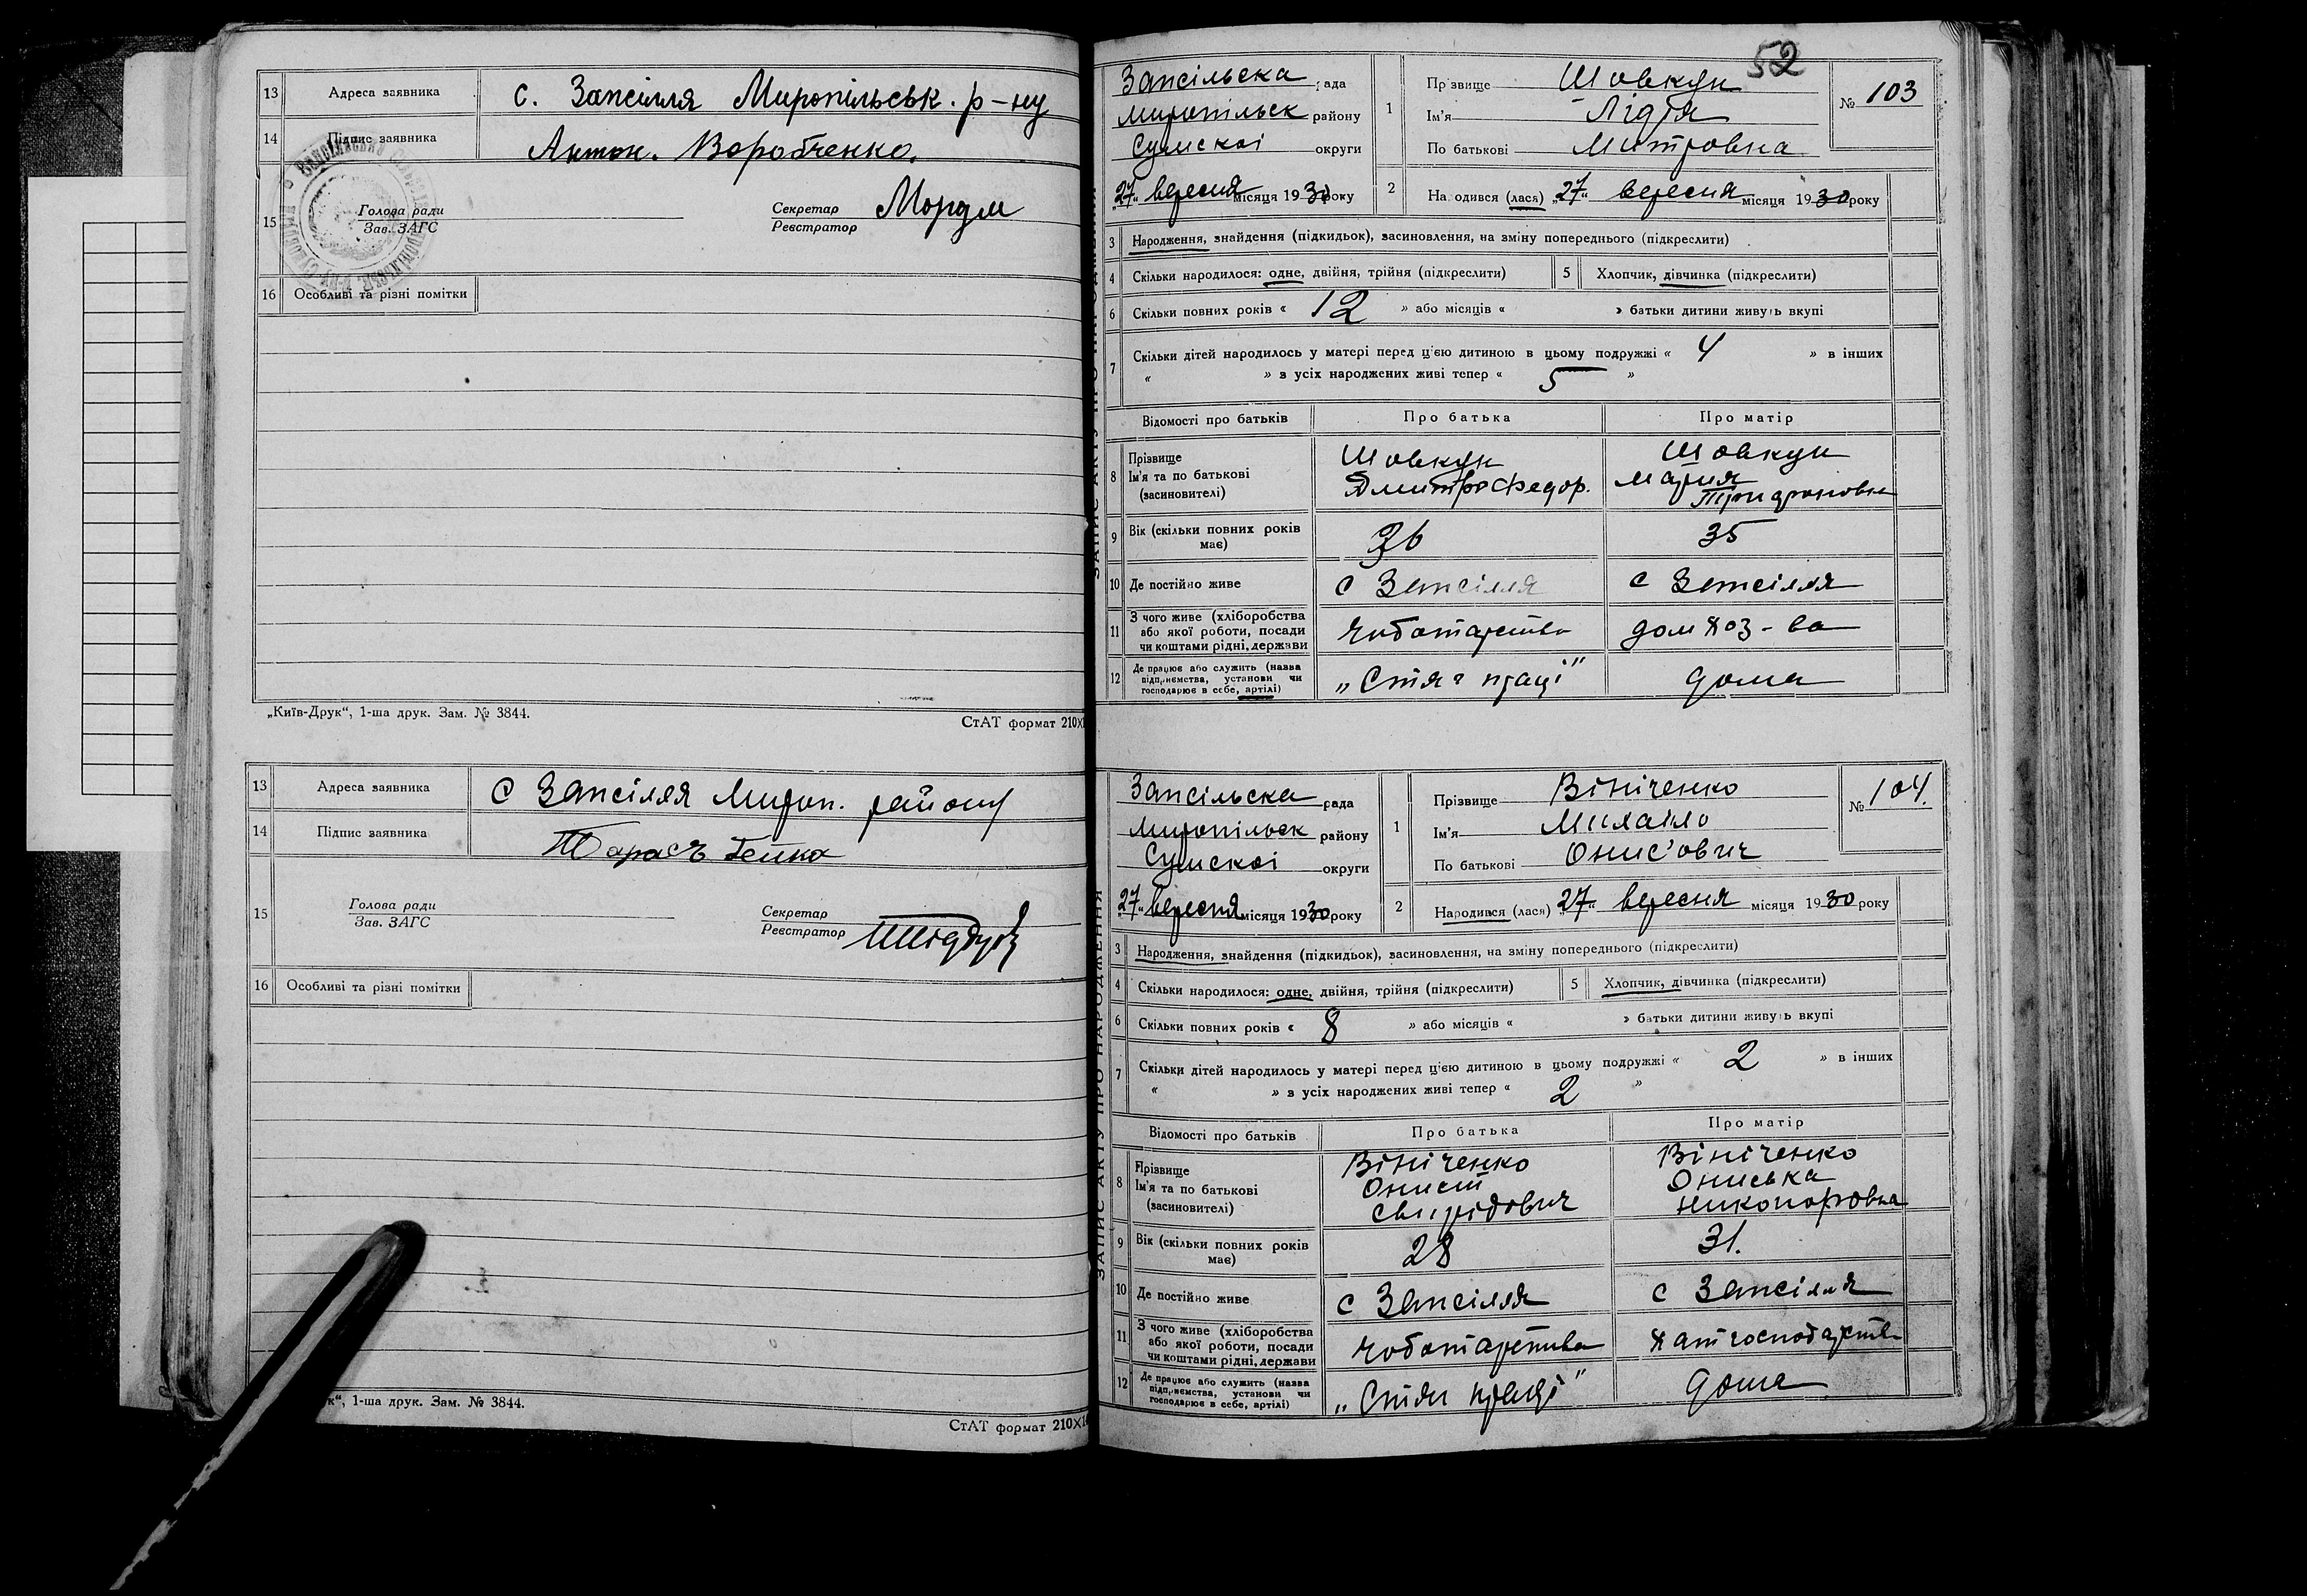 13 Адреса заявника с. Запсілля Миропільськ. р-ну
14 Підпис заявника Антон. Воробченко.
15 Голова ради
Зав. ЗАГС
Секретар
Реєстратор
16 Особливі та різні помітки
„Київ-Друк“, 1-ша друк. Зам. № 3844.
СтАТ формат 210×
13 Адреса заявника С Запсілля Мироп. району
14 Підпис заявника Тарасъ
15 Голова ради
Зав. ЗАГС
Секретар
Реєстратор
16 Особливі та різні помітки
к“, 1-ша друк. Зам. № 3844.
СтАТ формат 210×
52
ЗАПИС АКТУ ПРО НАРОДЖЕННЯ
Запсільска рада
Миропільск району
Сумскоі округи
„27“ вересня місяця 1930 року
1 Прізвище Шовкун
Ім'я Лідія
По батькові Митровна
№ 103
2 Народився (лася) „27“ вересня місяця 1930 року
3 Народження, знайдення (підкидьок), васиновлення, на зміну попереднього (підкреслити)
4 Скільки народилося: одне, двійня, трійня (підкреслити) 5 Хлопчик, дівчинка (підкреслити)
6 Скільки повних років « 12 » або місяців « » батьки дитини живуть вкупі
7 Скільки дітей народилось у матері перед цією дитиною в цьому подружжі « 4 » в інших
« » з усіх народжених живі тепер « 5 »
Відомості про батьків Про батька Про матір
8 Прізвище Шовкун Шовкун
Ім'я та по батькові Дмитро Федор. Мария
(васиновителі)
9 Вік (скільки повних років має) 36 35
10 Де постійно живе с Запсілля с Запсілля
11 З чого живе (хліборобства або якої роботи, посади чи коштами рідні, держави чоботарства дом хоз-ва
12 Де працює або служить (назва підприємства, установи чи господарює в себе, артілі) „Стяг праці“ дома
ЗАПИС АКТУ ПРО НАРОДЖЕННЯ
Запсільска рада
Миропільск району
Сумскоі округи
„27“ вересня місяця 1930 року
1 Прізвище Вініченко
Ім'я Михаіло
По батькові Онис'ович
№ 104.
2 Народився (лася) „27“ вересня місяця 1930 року
3 Народження, знайдення (підкидьок), васиновлення, на зміну попереднього (підкреслити)
4 Скільки народилося: одне, двійня, трійня (підкреслити) 5 Хлопчик, дівчинка (підкреслити)
6 Скільки повних років « 8 » або місяців « » батьки дитини живуть вкупі
7 Скільки дітей народилось у матері перед цією дитиною в цьому подружжі « 2 » в інших
« » з усіх народжених живі тепер « 2 »
Відомості про батьків Про батька Про матір
8 Прізвище Вініченко Вініченко
Ім'я та по батькові Онисій Ониська
(васиновителі) Свирідович Никопоровна
9 Вік (скільки повних років має) 28 31.
10 Де постійно живе с Запсілля с Запсілля
11 З чого живе (хліборобства або якої роботи, посади чи коштами рідні, держави чоботарства хатгосподарства
12 Де працює або служить (назва підприємства, установи чи господарює в себе, артілі) „Стяг праці“ дома